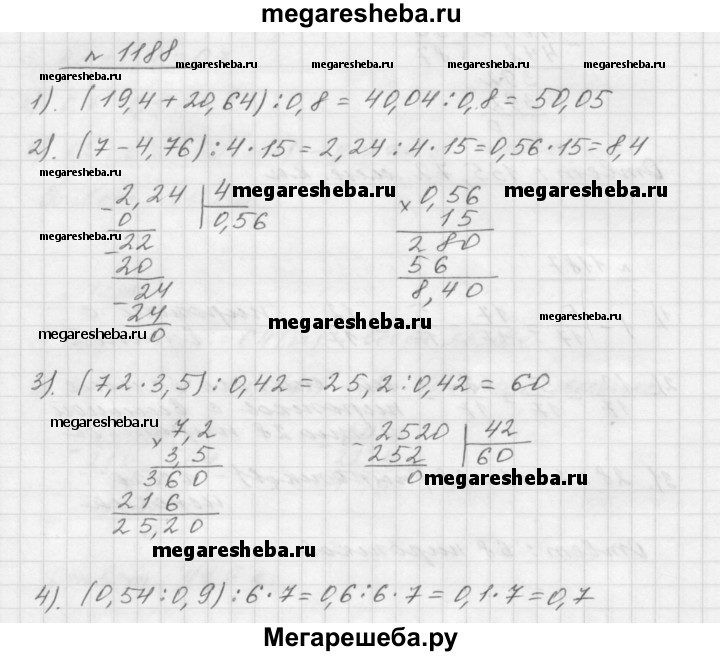 megaresheba.ru
№ 1188
megaresheba.ru megaresheba.ru megaresheba.ru megaresheba.ru
1). (19,4 + 20,64) : 0,8 = 40,04 : 0,8 = 50,05
2). (7 - 4,76) : 4 · 15 = 2,24 : 4 · 15 = 0,56 · 15 = 8,4
- 2,24 | 4 megaresheba.ru × 0,56 megaresheba.ru
0 | 0,56 15
megaresheba.ru
- 22 2 80
20 5 6
- 24 8,40
24
megaresheba.ru 0 megaresheba.ru megaresheba.ru
3). (7,2 · 3,5) : 0,42 = 25,2 : 0,42 = 60
megaresheba.ru
× 7,2 - 2520 | 42
3,5 252 | 60
360 0 megaresheba.ru
216
25,20
megaresheba.ru megaresheba.ru
4). (0,54 : 0,9) : 6 · 7 = 0,6 : 6 · 7 = 0,1 · 7 = 0,7
Мегарешеба.ру